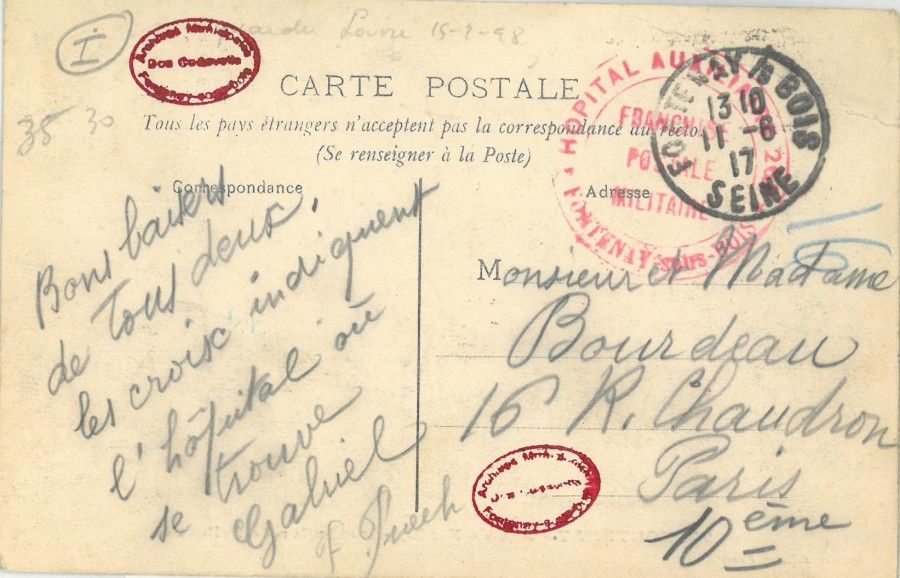 I
Louvre 15-2-98
35 30
Archives Municipales
Doc Godevette
Fontenay-sous-Bois
CARTE POSTALE
Tous les pays étrangers n'acceptent pas la correspondance au recto
(Se renseigner à la Poste)
Correspondance
Adresse
HOPITAL AUXILIAIRE
FONTENAY-SOUS-BOIS
FRANCHISE
POSTALE
MILITAIRE
FONTENAY S BOIS
13 10
11 - 6
17
SEINE
Bons baisers
de tous deux,
les croix indiquent
l'hôpital où
se trouve
Gabriel
Monsieur et Madame
Bourdeau
16 R. Chaudron
Paris
10 ème
Archives Mun
Fontenay-s